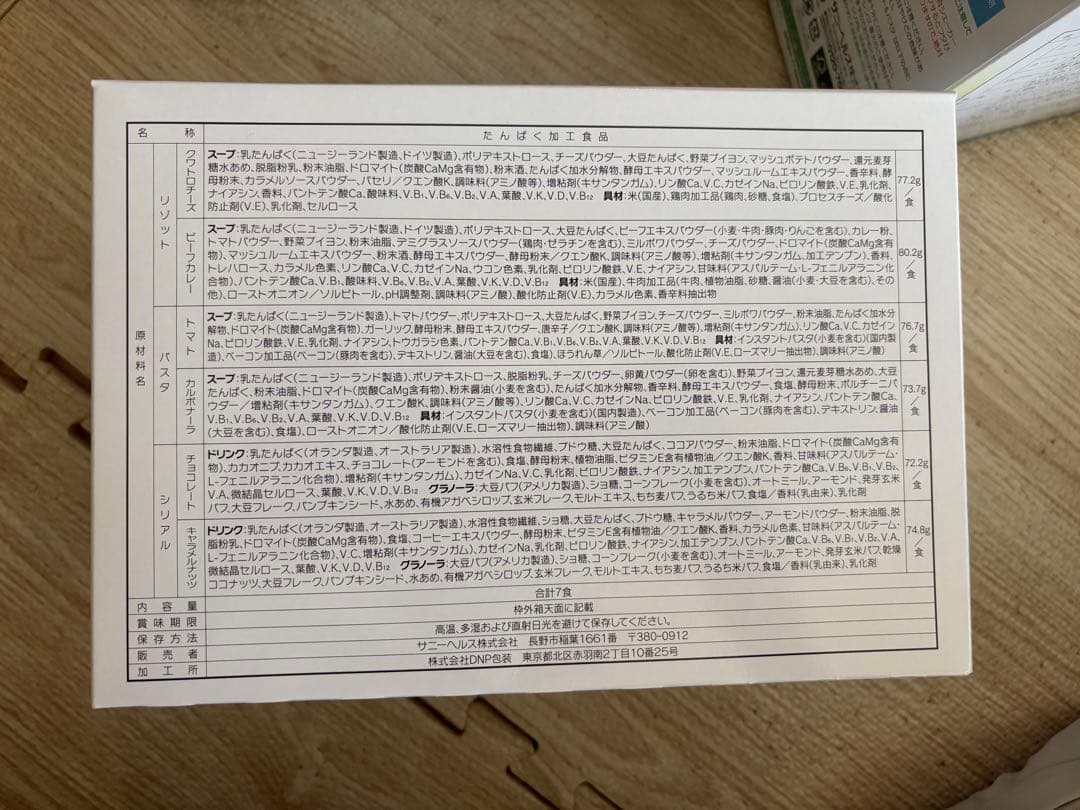 名称 たんぱく加工食品
原材料名
リゾット
クワトロチーズ
スープ:乳たんぱく(ニュージーランド製造、ドイツ製造)、ポリデキストロース、チーズパウダー、大豆たんぱく、野菜ブイヨン、マッシュポテトパウダー、還元麦芽
糖水あめ、脱脂粉乳、粉末油脂、ドロマイト(炭酸CaMg含有物)、粉末酒、たんぱく加水分解物、酵母エキスパウダー、マッシュルームエキスパウダー、香辛料、酵
母粉末、カラメルソースパウダー、パセリ/クエン酸K、調味料(アミノ酸等)、増粘剤(キサンタンガム)、リン酸Ca、V.C、カゼインNa、ピロリン酸鉄、V.E、乳化剤、
ナイアシン、香料、パントテン酸Ca、酸味料、V.B₁、V.B₆、V.B₂、V.A、葉酸、V.K、V.D、V.B₁₂ 具材:米(国産)、鶏肉加工品(鶏肉、砂糖、食塩)、プロセスチーズ/酸化
防止剤(V.E)、乳化剤、セルロース
77.2g/食
ビーフカレー
スープ:乳たんぱく(ニュージーランド製造、ドイツ製造)、ポリデキストロース、大豆たんぱく、ビーフエキスパウダー(小麦・牛肉・豚肉・りんごを含む)、カレー粉、
トマトパウダー、野菜ブイヨン、粉末油脂、デミグラスソースパウダー(鶏肉・ゼラチンを含む)、ミルポワパウダー、チーズパウダー、ドロマイト(炭酸CaMg含有
物)、マッシュルームエキスパウダー、粉末酒、酵母エキスパウダー、酵母粉末/クエン酸K、調味料(アミノ酸等)、増粘剤(キサンタンガム、加工デンプン)、香料、
トレハロース、カラメル色素、リン酸Ca、V.C、カゼインNa、ウコン色素、乳化剤、ピロリン酸鉄、V.E、ナイアシン、甘味料(アスパルテーム・L-フェニルアラニン化合
物)、パントテン酸Ca、V.B₁、酸味料、V.B₆、V.B₂、V.A、葉酸、V.K、V.D、V.B₁₂ 具材:米(国産)、牛肉加工品(牛肉、植物油脂、砂糖、醤油(小麦・大豆を含む)、その
他)、ローストオニオン/ソルビトール、pH調整剤、調味料(アミノ酸)、酸化防止剤(V.E)、カラメル色素、香辛料抽出物
80.2g/食
パスタ
トマト
スープ:乳たんぱく(ニュージーランド製造)、トマトパウダー、ポリデキストロース、大豆たんぱく、野菜ブイヨン、チーズパウダー、ミルポワパウダー、粉末油脂、たんぱく加水分
解物、ドロマイト(炭酸CaMg含有物)、ガーリック、酵母粉末、酵母エキスパウダー、唐辛子/クエン酸K、調味料(アミノ酸等)、増粘剤(キサンタンガム)、リン酸Ca、V.C、カゼイン
Na、ピロリン酸鉄、V.E、乳化剤、ナイアシン、トウガラシ色素、パントテン酸Ca、V.B₁、V.B₆、V.B₂、V.A、葉酸、V.K、V.D、V.B₁₂ 具材:インスタントパスタ(小麦を含む)(国内製
造)、ベーコン加工品(ベーコン(豚肉を含む)、デキストリン、醤油(大豆を含む)、食塩)、ほうれん草/ソルビトール、酸化防止剤(V.E、ローズマリー抽出物)、調味料(アミノ酸)
76.7g/食
カルボナーラ
スープ:乳たんぱく(ニュージーランド製造)、ポリデキストロース、脱脂粉乳、チーズパウダー、卵黄パウダー(卵を含む)、野菜ブイヨン、還元麦芽糖水あめ、大豆
たんぱく、粉末油脂、ドロマイト(炭酸CaMg含有物)、粉末醤油(小麦を含む)、たんぱく加水分解物、香辛料、酵母エキスパウダー、食塩、酵母粉末、ポルチーニパ
ウダー/増粘剤(キサンタンガム)、クエン酸K、調味料(アミノ酸等)、リン酸Ca、V.C、カゼインNa、ピロリン酸鉄、V.E、乳化剤、ナイアシン、パントテン酸Ca、
V.B₁、V.B₆、V.B₂、V.A、葉酸、V.K、V.D、V.B₁₂ 具材:インスタントパスタ(小麦を含む)(国内製造)、ベーコン加工品(ベーコン(豚肉を含む)、デキストリン、醤油
(大豆を含む)、食塩)、ローストオニオン/酸化防止剤(V.E、ローズマリー抽出物)、調味料(アミノ酸)
73.7g/食
シリアル
チョコレート
ドリンク:乳たんぱく(オランダ製造、オーストラリア製造)、水溶性食物繊維、ブドウ糖、大豆たんぱく、ココアパウダー、粉末油脂、ドロマイト(炭酸CaMg含有
物)、カカオニブ、カカオエキス、チョコレート(アーモンドを含む)、食塩、酵母粉末、植物油脂、ビタミンE含有植物油/クエン酸K、香料、甘味料(アスパルテーム・
L-フェニルアラニン化合物)、増粘剤(キサンタンガム)、カゼインNa、V.C、乳化剤、ピロリン酸鉄、ナイアシン、加工デンプン、パントテン酸Ca、V.B₆、V.B₁、V.B₂、
V.A、微結晶セルロース、葉酸、V.K、V.D、V.B₁₂ グラノーラ:大豆パフ(アメリカ製造)、ショ糖、コーンフレーク(小麦を含む)、オートミール、アーモンド、発芽玄米
パフ、大豆フレーク、パンプキンシード、水あめ、有機アガベシロップ、玄米フレーク、モルトエキス、もち麦パフ、うるち米パフ、食塩/香料(乳由来)、乳化剤
72.2g/食
キャラメルナッツ
ドリンク:乳たんぱく(オランダ製造、オーストラリア製造)、水溶性食物繊維、ショ糖、大豆たんぱく、ブドウ糖、キャラメルパウダー、アーモンドパウダー、粉末油脂、脱
脂粉乳、ドロマイト(炭酸CaMg含有物)、食塩、コーヒーエキスパウダー、酵母粉末、ビタミンE含有植物油/クエン酸K、香料、カラメル色素、甘味料(アスパルテーム・
L-フェニルアラニン化合物)、V.C、増粘剤(キサンタンガム)、カゼインNa、乳化剤、ピロリン酸鉄、ナイアシン、加工デンプン、パントテン酸Ca、V.B₆、V.B₁、V.B₂、V.A、
微結晶セルロース、葉酸、V.K、V.D、V.B₁₂ グラノーラ:大豆パフ(アメリカ製造)、ショ糖、コーンフレーク(小麦を含む)、オートミール、アーモンド、発芽玄米パフ、乾燥
ココナッツ、大豆フレーク、パンプキンシード、水あめ、有機アガベシロップ、玄米フレーク、モルトエキス、もち麦パフ、うるち米パフ、食塩/香料(乳由来)、乳化剤
74.8g/食
内容量 合計7食
賞味期限 枠外箱天面に記載
保存方法 高温、多湿および直射日光を避けて保存してください。
販売者 サニーヘルス株式会社 長野市稲葉1661番 〒380-0912
加工所 株式会社DNP包装 東京都北区赤羽南2丁目10番25号